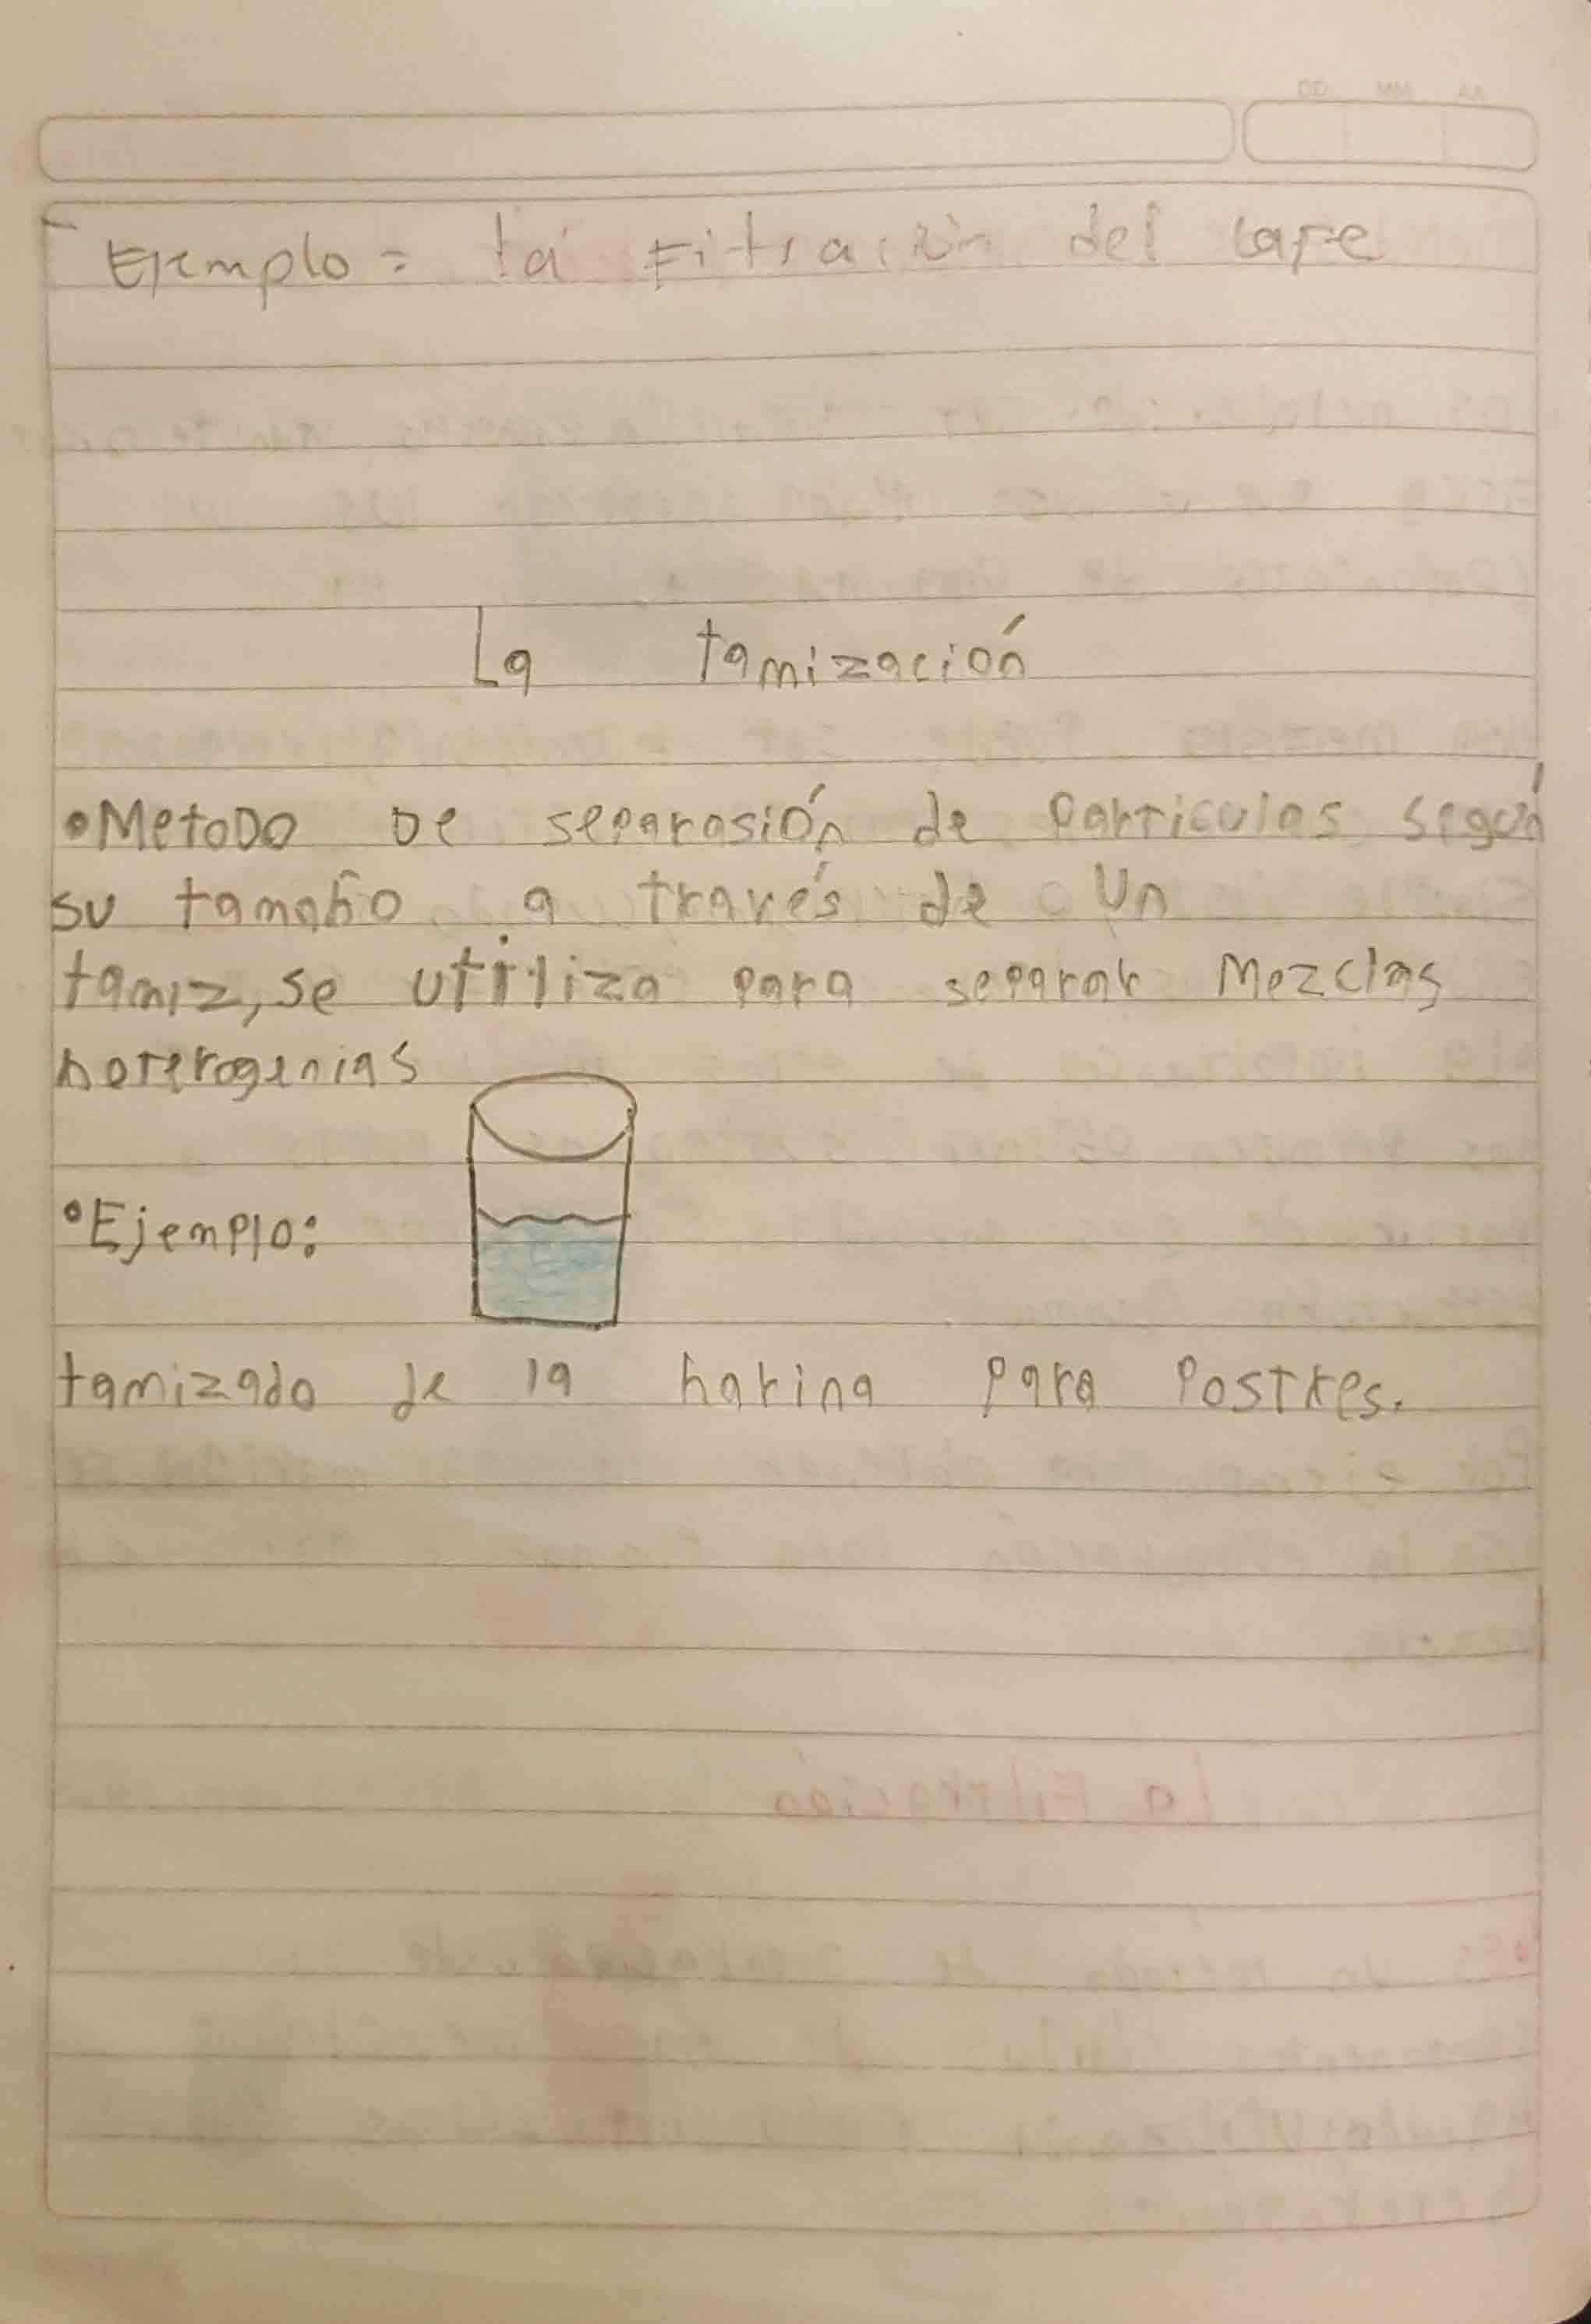 Ejemplo = la Fitración del cafe
La tamización
•MetoDo De separasión de particulas según
su tamaño a través de Un
tamiz, se utiliza para separar Mezclas
hoterogenias
•Ejemplo:
tamizado de la harina para Postres.